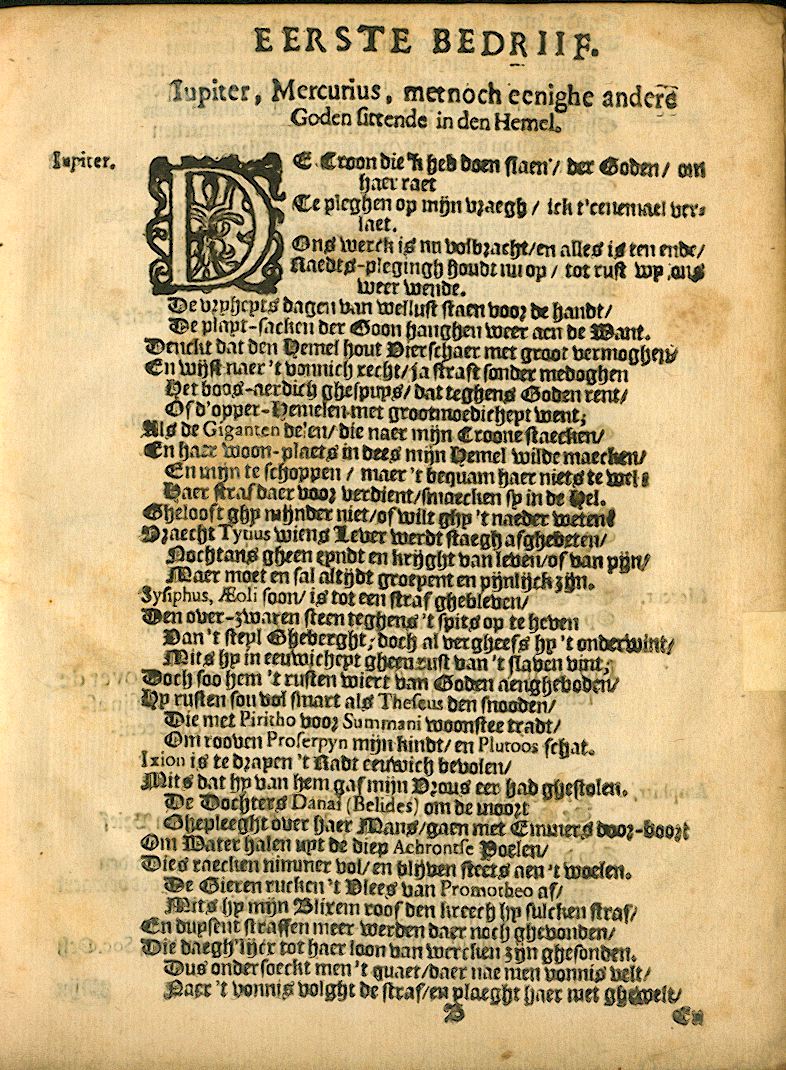 EERSTE BEDRIIF.
Iupiter, Mercurius, met noch eenighe andere
Goden sittende in den Hemel.
Iupiter.
DE Croon die 'k heb doen slaen / der Goden / om
haer raet
Te pleghen op mijn vraegh / ick t'eenemael ver-
laet.
Ons werck is nu volbracht / en alles is ten ende /
Raedts-plegingh houdt nu op / tot rust wy ons
weer wende.
De vryheyts dagen van wellust staen voor de handt /
De playt-sacken der Goon hanghen weer aen de Want.
Denckt dat den Hemel hout Vierschaer met groot vermoghen /
En wijst naer 't vonnich recht / ja straft sonder medoghen
Het boos-aerdich ghespuys / dat teghens Goden rent /
Of d'opper-Hemelen met grootmoedicheyt went;
Als de Giganten de'en / die naer mijn Croone staecken /
En haer woon-plaets in dees mijn Hemel wilde maecken /
En mijn te schoppen / maer 't bequam haer niets te wel:
Haer straf daer voor verdient / smaecken sy in de Hel.
Ghelooft ghy mijnder niet / of wilt ghy 't naeder weten?
Vraecht Tytius wiens Lever werdt staegh afghebeten /
Nochtans gheen eyndt en krijght van leven / of van pijn /
Maer moet en sal altijdt groepent en pijnlijck zijn.
Sysiphus, Æoli soon / is tot een straf ghebleven /
Den over-zwaren steen teghens 't spits op te heven
Van 't steyl Gheberght; doch al vergheefs hy 't onderwint /
Mits hy in eeuwicheyt gheen rust van 't slaven vint;
Doch soo hem 't rusten wiert van Goden aengheboden /
Hy rusten sou vol smart als Theseus den snooden /
Die met Piritho voor Summani woonstee tradt /
Om rooven Proserpyn mijn kindt / en Plutoos schat.
Ixion is te drayen 't Radt eeuwich bevolen /
Mits dat hy van hem gaf mijn Vrous eer had ghestolen.
De Dochters Danai (Belides) om de moort
Ghepleeght over haer Mans / gaen met Emmers door-boort
Om Water halen uyt de diep Achrontse Poelen /
Dies raecken nimmer vol / en blijven steets aen 't woelen.
De Gieren rucken 't Vlees van Promotheo af /
Mits hy mijn Blixem roof den kreech hy sulcken straf /
En duysent straffen meer werden daer noch ghevonden /
Die daegh'lijcx tot haer loon van wercken zijn ghesonden.
Dus ondersoeckt men 't quaet / daer nae men vonnis velt /
Naer 't vonnis volght de straf / en plaeght haer met ghewelt /
B En